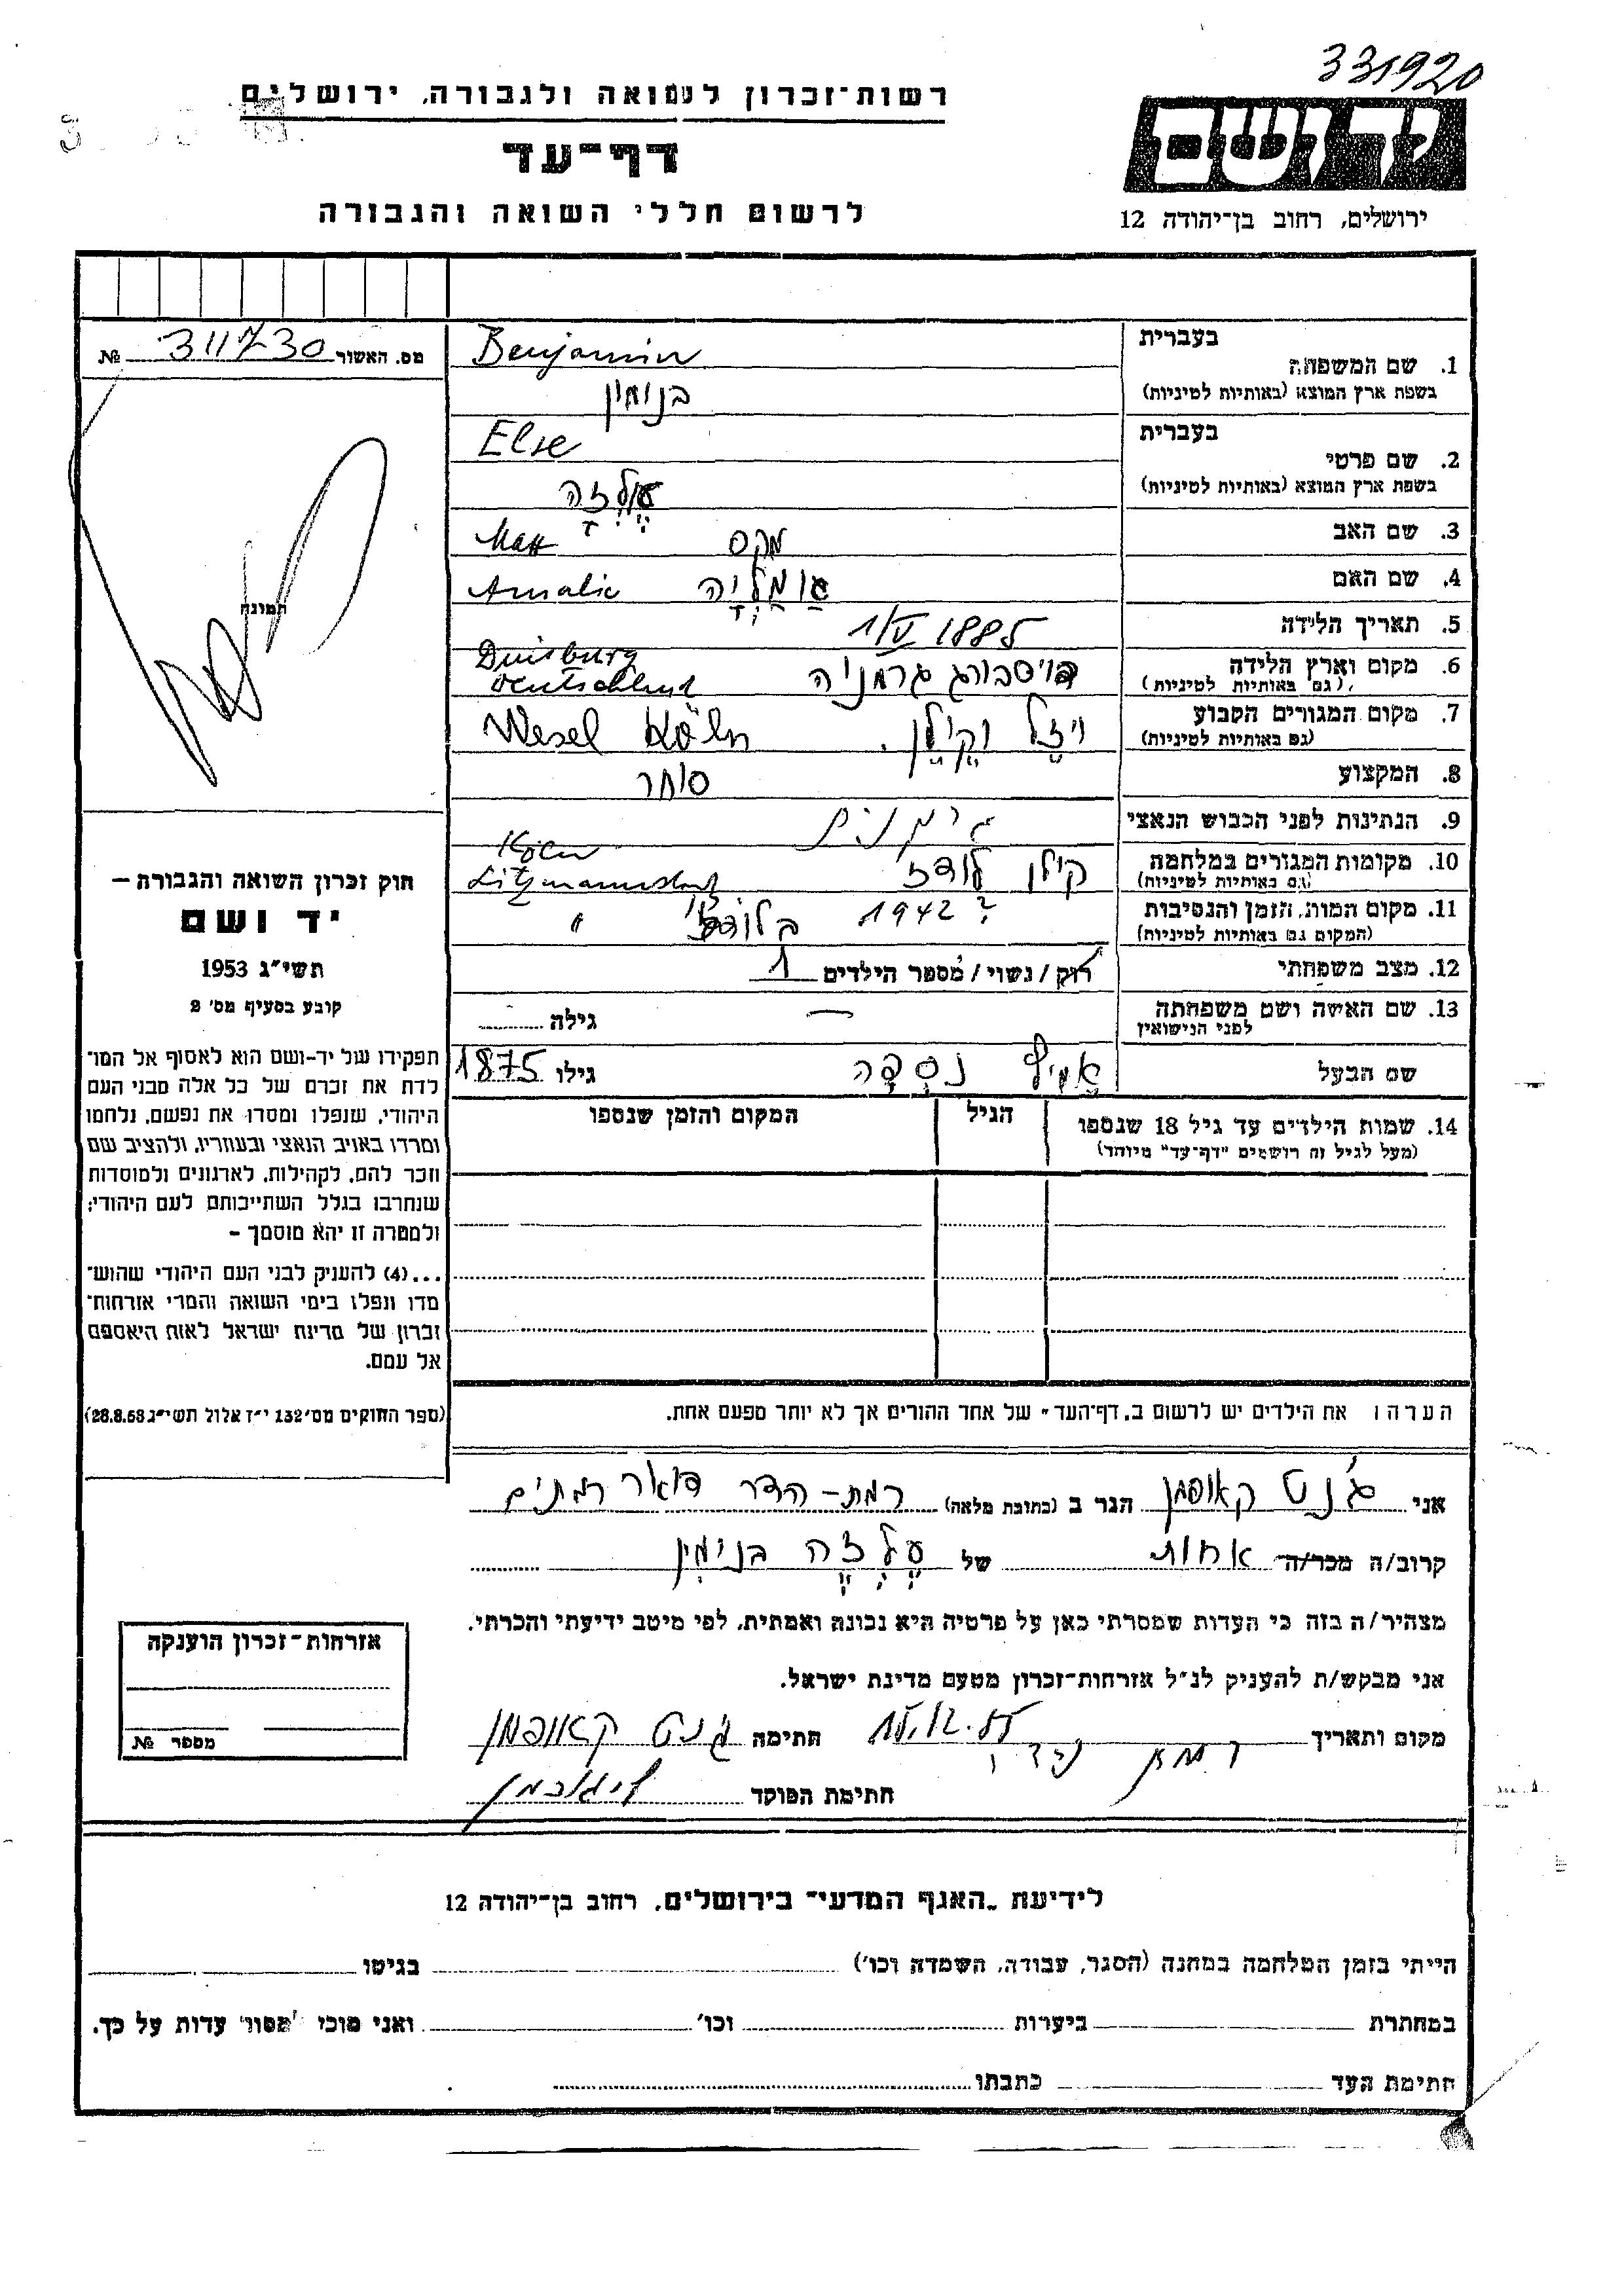 331920
רשות־זכרון לשואה ולגבורה, ירושלים
דף־עד
לרשום חללי השואה והגבורה
ירושלים, רחוב בן־יהודה 12
מס. האשור 311730 №
תמונה
חוק זכרון השואה והגבורה –
יד ושם
תשי״ג 1953
קובע בסעיף מס׳ 2
תפקידו של יד-ושם הוא לאסוף אל המו־
לדת את זכרם של כל אלה מבני העם
היהודי, שנפלו ומסרו את נפשם, נלחמו
ומרדו באויב הנאצי ובעוזריו, ולהציב שם
וזכר להם, לקהילות, לארגונים ולמוסדות
שנחרבו בגלל השתייכותם לעם היהודי;
ולמטרה זו יהא מוסמך –
...(4) להעניק לבני העם היהודי שהוש־
מדו ונפלו בימי השואה והמרי אזרחות־
זכרון של מדינת ישראל לאות היאספם
אל עמם.
(ספר החוקים מס׳ 132 י״ז אלול תשי״ג 28.8.53)
בעברית
1. שם המשפחה Benjamin
בשפת ארץ המוצא (באותיות לטיניות) בנימין
בעברית
2. שם פרטי Else
בשפת ארץ המוצא (באותיות לטיניות) עֶלְזָה
3. שם האב מקס Max
4. שם האם אַמַלְיָה Amalie
5. תאריך הלידה 1/V 1885
6. מקום וארץ הלידה דויסבורג גרמניה Duisburg
(גם באותיות לטיניות) Deutschland
7. מקום המגורים הקבוע ויזל וקילן. Wesel Köln
(גם באותיות לטיניות)
8. המקצוע סוחר
9. הנתינות לפני הכבוש הנאצי גרמנית
10. מקומות המגורים במלחמה קילן לודז Köln
(גם באותיות לטיניות) Litzmannstadt
11. מקום המות, הזמן והנסיבות 1942 ? בלודז׳ "
(המקום גם באותיות לטיניות)
12. מצב משפחתי רוק/נשוי/מספר הילדים 1
13. שם האשה ושם משפחתה — גילה
לפני הנישואין
שם הבעל אֶמיל נִסְפָּה גילו 1875
14. שמות הילדים עד גיל 18 שנספו הגיל המקום והזמן שנספו
(מעל לגיל זה רושמים ״דף־עד״ מיוחד)
הערה: את הילדים יש לרשום ב„דף־העד״ של אחד ההורים אך לא יותר מפעם אחת.
אני ג׳נט קאופמן הגר ב (כתובת מלאה) רמת-הדר דואר רמתים
קרוב/ה מכר/ה אחות של עֶלְזֶה בנימין
מצהיר/ה בזה כי העדות שמסרתי כאן על פרטיה היא נכונה ואמתית, לפי מיטב ידיעתי והכרתי.
אני מבקש/ת להעניק לנ״ל אזרחות־זכרון מטעם מדינת ישראל.
מקום ותאריך רמת הדר 15.12.55 חתימה ג׳נט קאופמן
חתימת הפוקד
אזרחות־זכרון הוענקה
מספר №
לידיעת „האגף המדעי״ בירושלים, רחוב בן־יהודה 12
הייתי בזמן המלחמה במחנה (הסגר, עבודה, השמדה וכו׳) בגיטו
במחתרת ביערות וכו׳ ואני מוכן למסור עדות על כך.
חתימת העד כתבתו